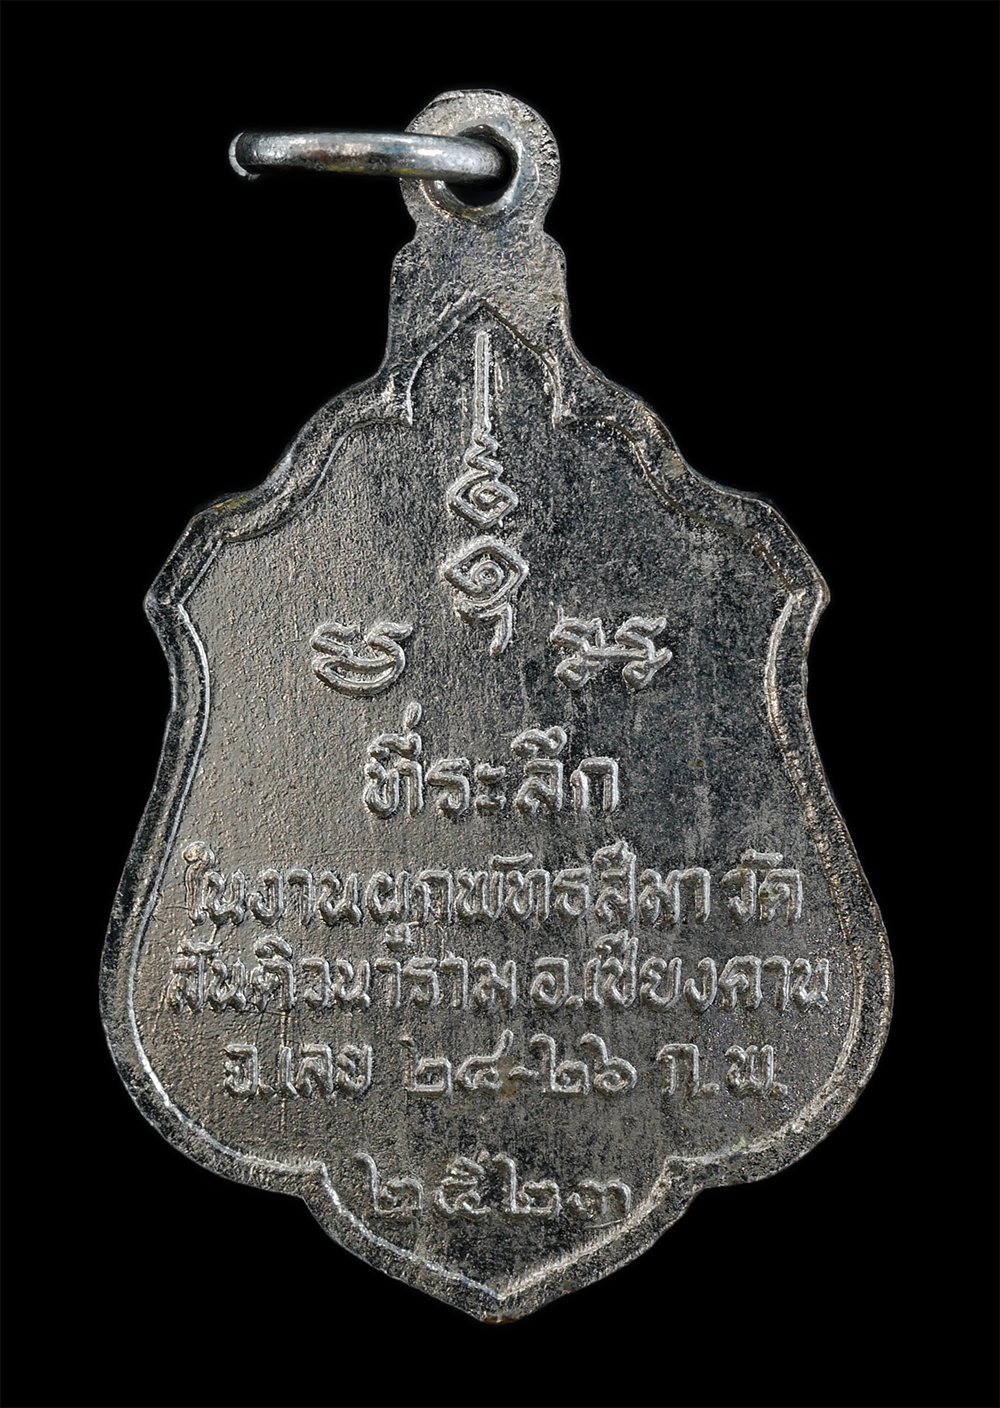 ที่ระลึก
ในงานผูกพัทธสีมา วัด
สันติวนาราม อ.เชียงคาน
จ.เลย ๒๔-๒๖ ก.พ.
๒๕๒๓